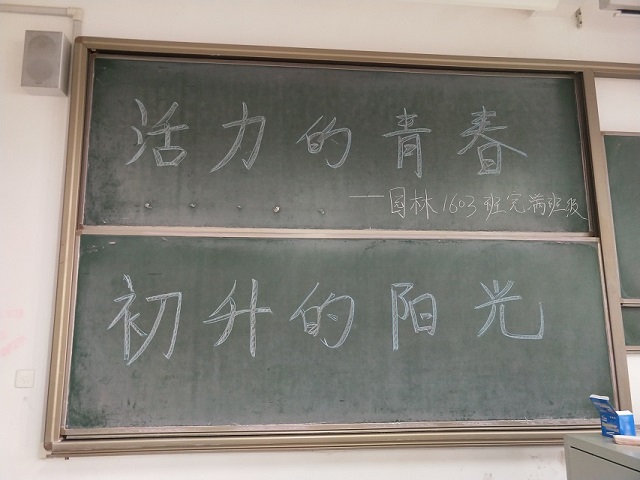 活力的青春
——园林1603班完满班级
初升的阳光